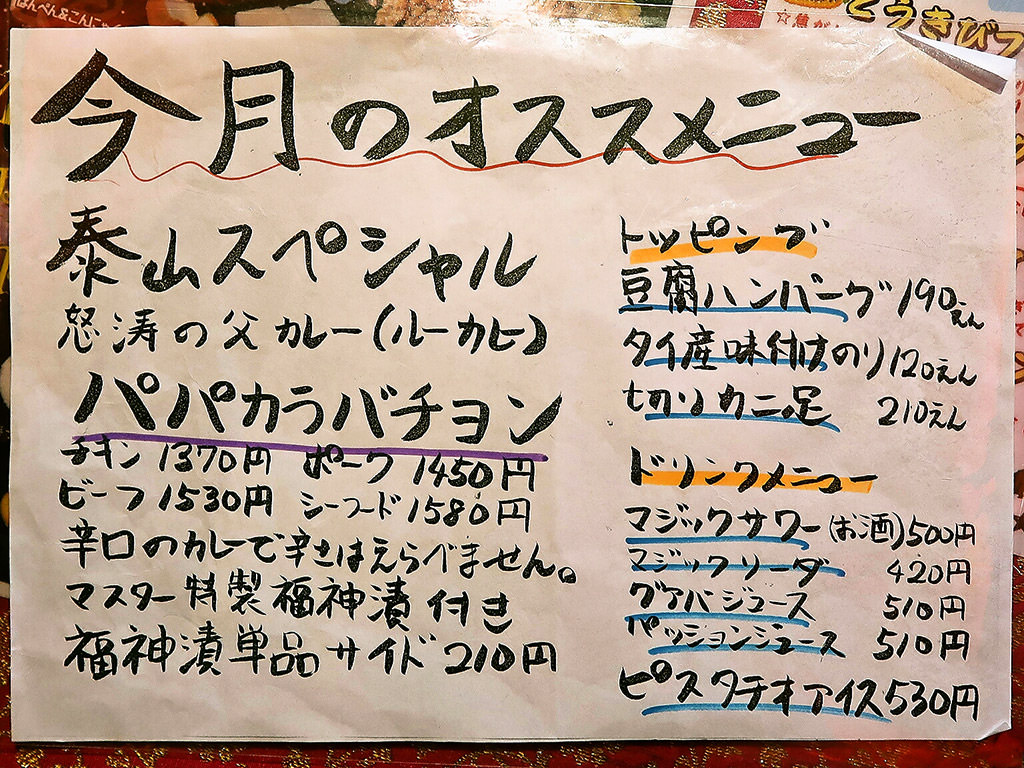 はんぺん&こんにゃ
とうきびフ
今月のオススメニュー
泰山スペシャル
怒涛の父カレー(ルーカレー)
パパカラバチョン
チキン 1370円 ポーク 1450円
ビーフ 1530円 シーフード 1580円
辛口のカレーで辛さはえらべません。
マスター特製福神漬付き
福神漬単品サイド 210円
トッピング
豆腐ハンバーグ 190えん
タイ産味付けのり 120えん
切りカニ足 210えん
ドリンクメニュー
マジックサワー(お酒) 500円
マジックソーダ 420円
グアバジュース 510円
パッションジュース 510円
ピスタチオアイス 530円